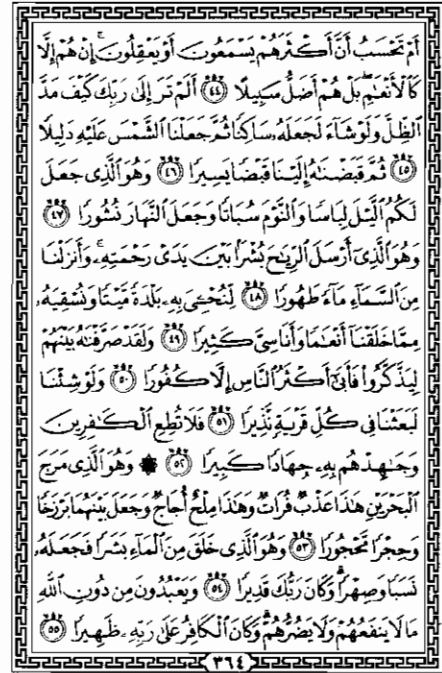 أَمْ تَحْسَبُ أَنَّ أَكْثَرَهُمْ يَسْمَعُونَ أَوْ يَعْقِلُونَ ۚ إِنْ هُمْ إِلَّا
كَالْأَنْعَامِ ۖ بَلْ هُمْ أَضَلُّ سَبِيلًا ﴿٤٤﴾ أَلَمْ تَرَ إِلَىٰ رَبِّكَ كَيْفَ مَدَّ
الظِّلَّ وَلَوْ شَاءَ لَجَعَلَهُ سَاكِنًا ثُمَّ جَعَلْنَا الشَّمْسَ عَلَيْهِ دَلِيلًا
﴿٤٥﴾ ثُمَّ قَبَضْنَاهُ إِلَيْنَا قَبْضًا يَسِيرًا ﴿٤٦﴾ وَهُوَ الَّذِي جَعَلَ
لَكُمُ اللَّيْلَ لِبَاسًا وَالنَّوْمَ سُبَاتًا وَجَعَلَ النَّهَارَ نُشُورًا ﴿٤٧﴾
وَهُوَ الَّذِي أَرْسَلَ الرِّيَاحَ بُشْرًا بَيْنَ يَدَيْ رَحْمَتِهِ ۚ وَأَنْزَلْنَا
مِنَ السَّمَاءِ مَاءً طَهُورًا ﴿٤٨﴾ لِنُحْيِيَ بِهِ بَلْدَةً مَيْتًا وَنُسْقِيَهُ
مِمَّا خَلَقْنَا أَنْعَامًا وَأَنَاسِيَّ كَثِيرًا ﴿٤٩﴾ وَلَقَدْ صَرَّفْنَاهُ بَيْنَهُمْ
لِيَذَّكَّرُوا فَأَبَىٰ أَكْثَرُ النَّاسِ إِلَّا كُفُورًا ﴿٥٠﴾ وَلَوْ شِئْنَا
لَبَعَثْنَا فِي كُلِّ قَرْيَةٍ نَذِيرًا ﴿٥١﴾ فَلَا تُطِعِ الْكَافِرِينَ
وَجَاهِدْهُمْ بِهِ جِهَادًا كَبِيرًا ﴿٥٢﴾ ۞ وَهُوَ الَّذِي مَرَجَ
الْبَحْرَيْنِ هَٰذَا عَذْبٌ فُرَاتٌ وَهَٰذَا مِلْحٌ أُجَاجٌ وَجَعَلَ بَيْنَهُمَا بَرْزَخًا
وَحِجْرًا مَحْجُورًا ﴿٥٣﴾ وَهُوَ الَّذِي خَلَقَ مِنَ الْمَاءِ بَشَرًا فَجَعَلَهُ
نَسَبًا وَصِهْرًا ۗ وَكَانَ رَبُّكَ قَدِيرًا ﴿٥٤﴾ وَيَعْبُدُونَ مِنْ دُونِ اللَّهِ
مَا لَا يَنْفَعُهُمْ وَلَا يَضُرُّهُمْ ۗ وَكَانَ الْكَافِرُ عَلَىٰ رَبِّهِ ظَهِيرًا ﴿٥٥﴾
٣٦٤